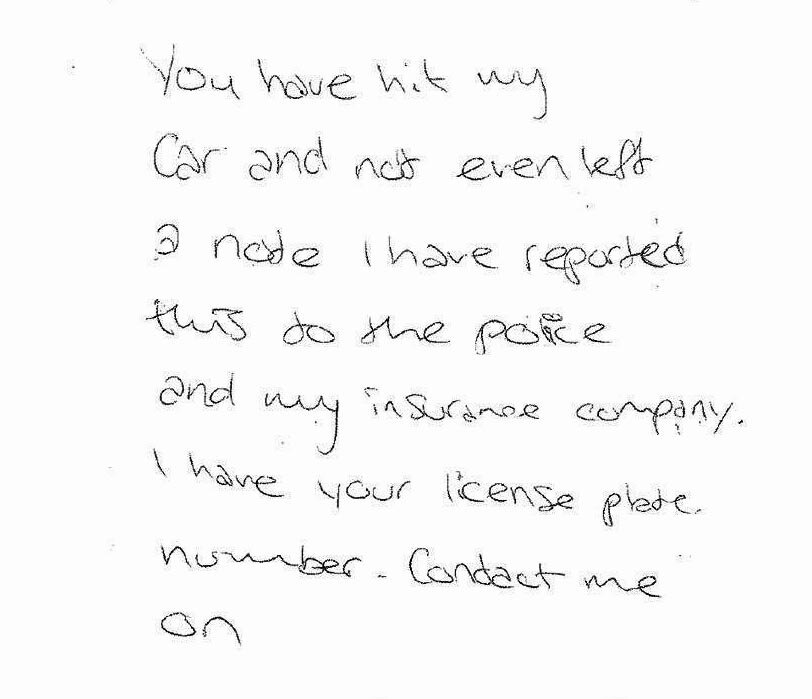 You have hit my
Car and not even left
a note I have reported
this to the police
and my insurance company.
I have your license plate.
number. Contact me
on